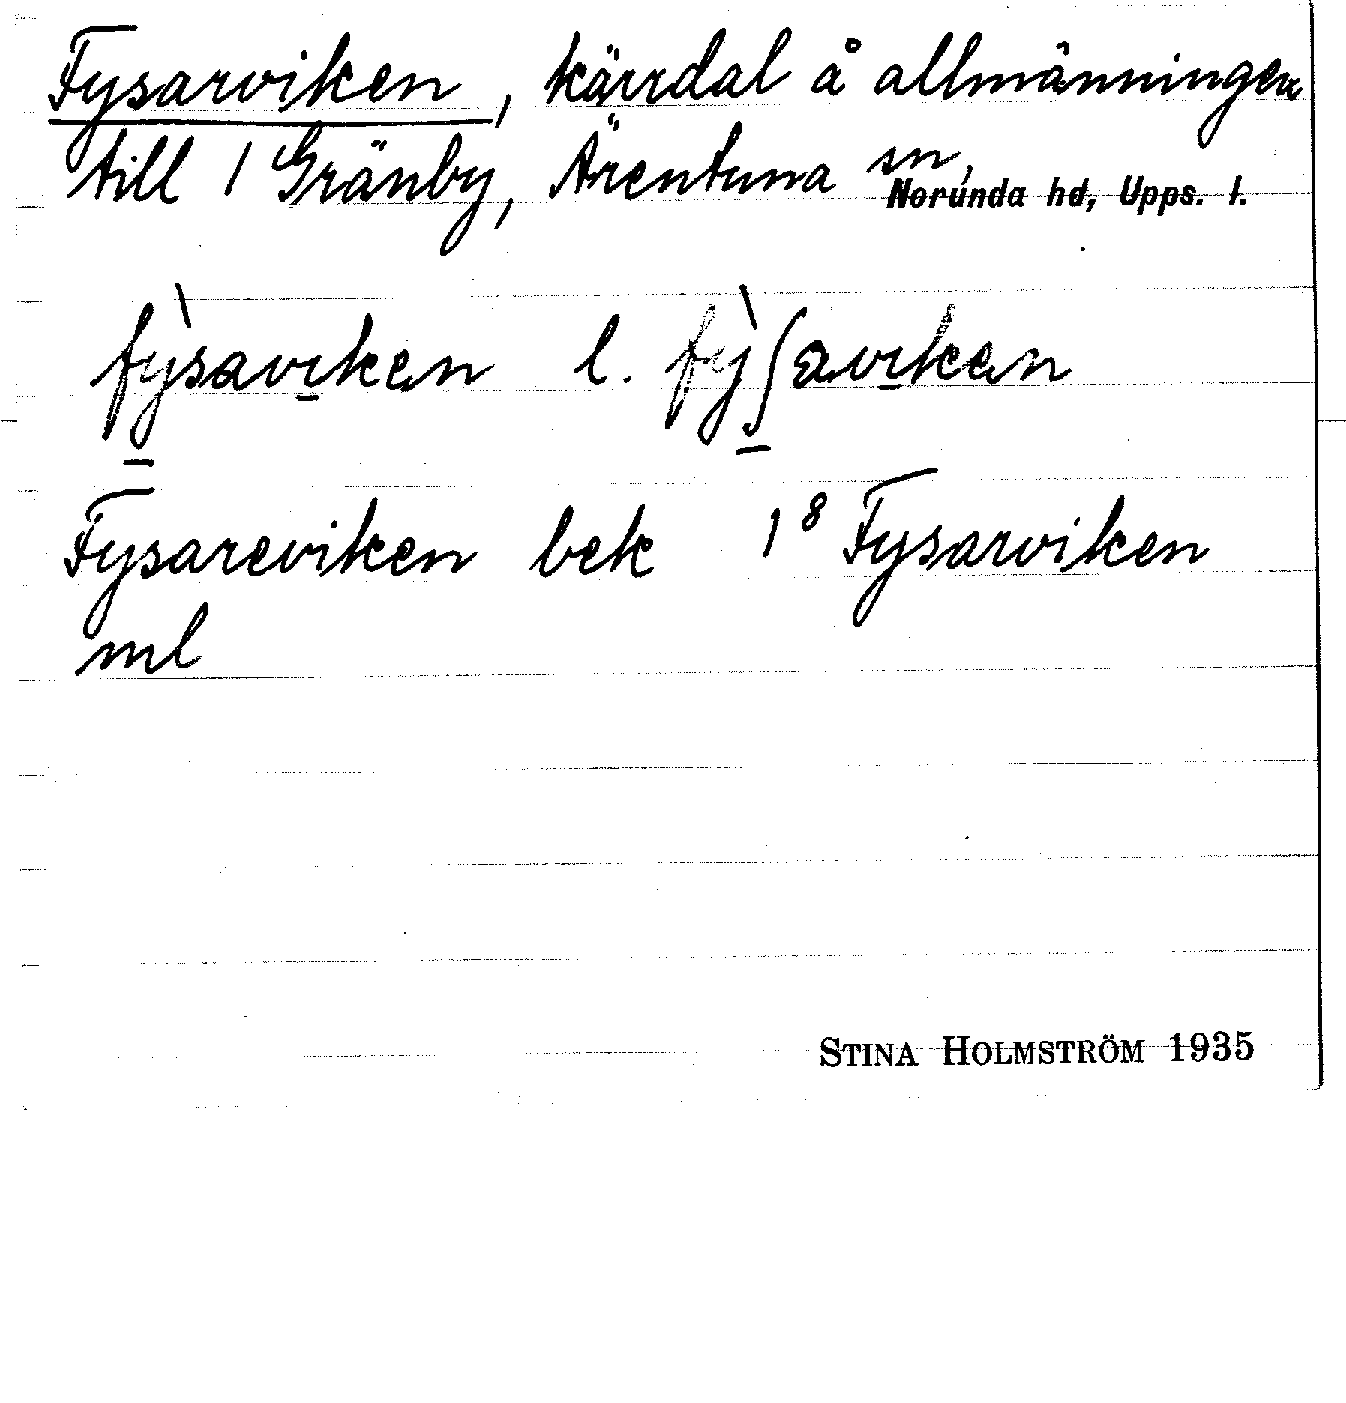 Fysarviken, kärrdal å allmänningen
till 1 Gränby, Ärentuna sn,
Norunda hd, Upps. l.
fỳsavıkən l. fỳʃavıkən
Fysareviken bek 1⁸ Fysarviken
ml
STINA HOLMSTRÖM 1935